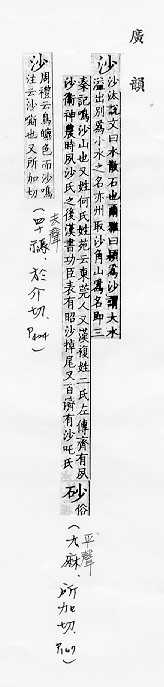 廣韻
沙 沙汰說文曰水散石也爾雅曰潁爲沙謂大水
溢出別爲小水之名亦州取沙角山爲名即三
秦記鳴沙山也又姓何氏姓苑云東莞人又漢複姓二氏左傳齊有夙
沙衞神農時夙沙氏之後漢書功臣表有昭沙掉尾又百濟有沙吒氏
砂 俗
(平聲
六麻 所加切 P167)
沙 周禮云鳥皫色而沙鳴
注云沙嘶也又所加切
(去聲
四十禡 於介切 P404)